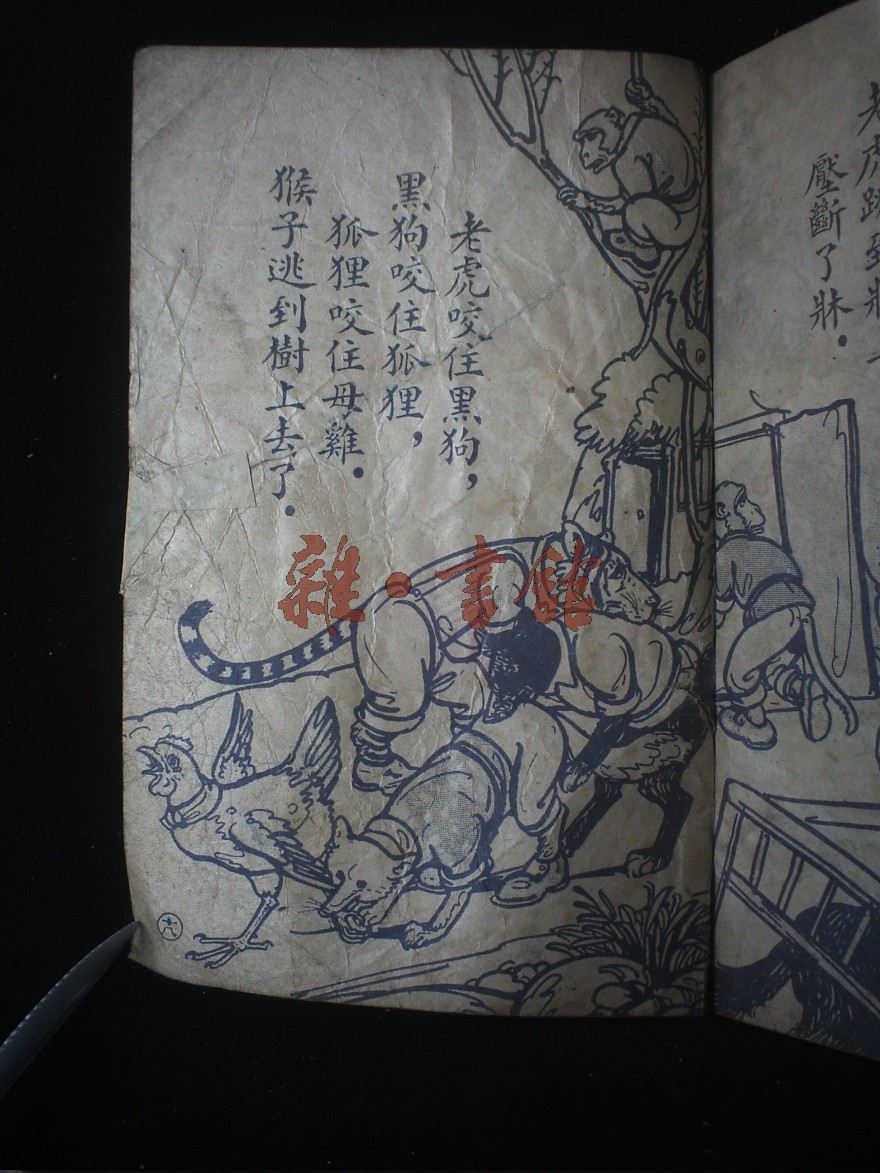 老虎跳到牀上
壓斷了牀．
老虎咬住黑狗，
黑狗咬住狐狸，
狐狸咬住母雞．
猴子逃到樹上去了．
雜·書館
十八